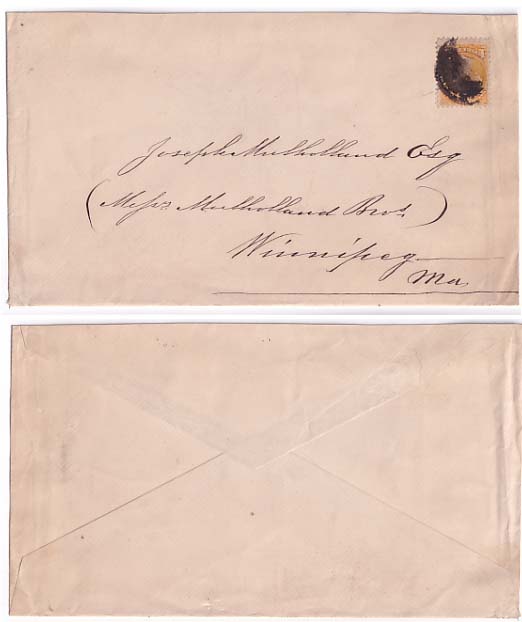 Joseph Mulholland Esq
(Messrs Mulholland Bros)
Winnipeg
Ma